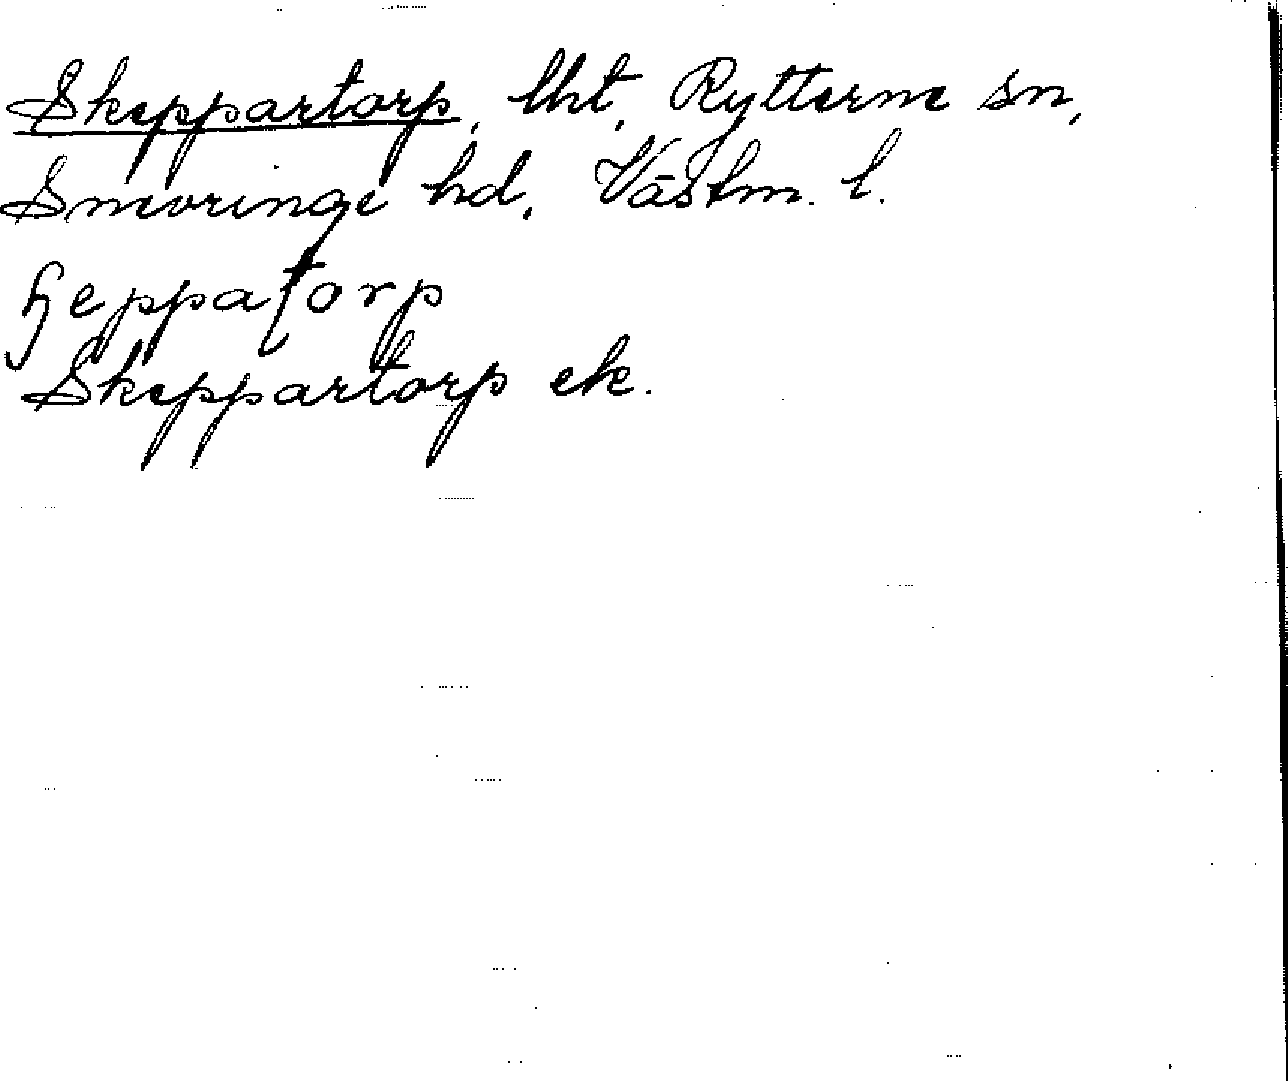 Skeppartorp, lht, Rytterne sn,
Snevringe hd, Västm. l.
ɧeppaʈorp
Skeppartorp ek.